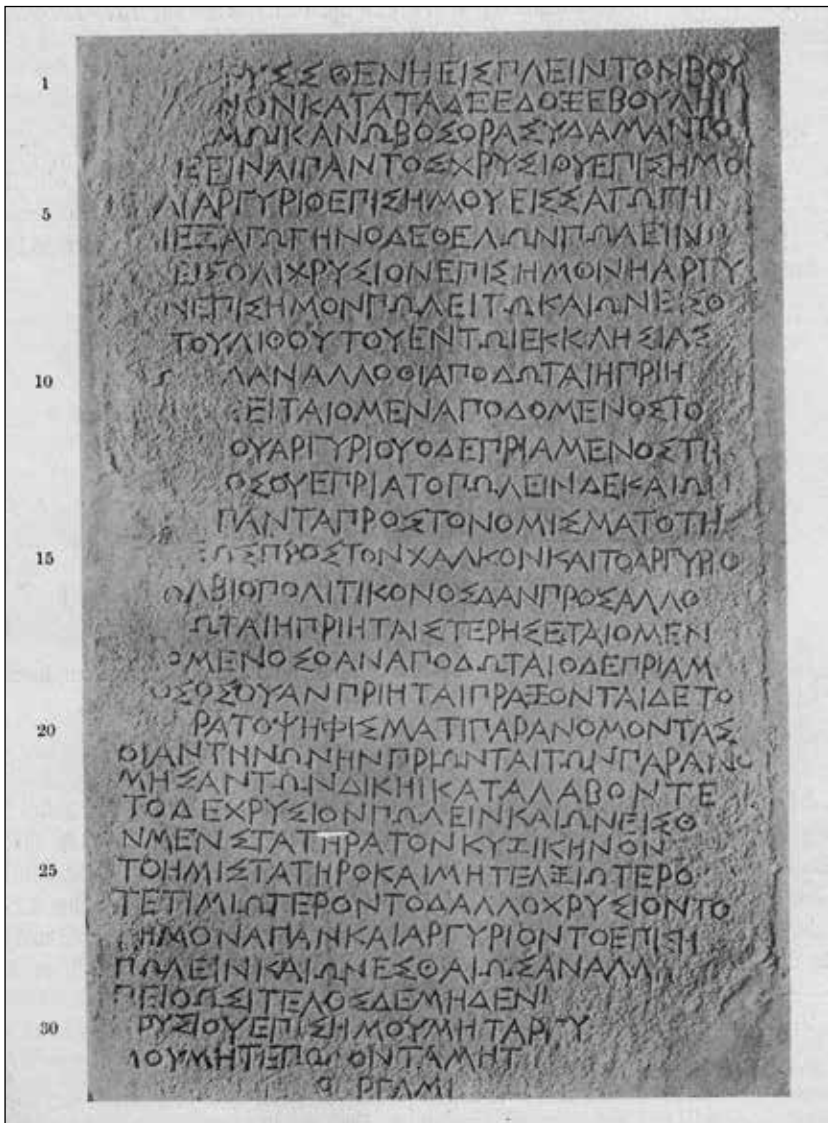 1 ΥΣΣΘΕΝΗΕΙΣΠΛΕΙΝΤΟΝΒΟΥ
ΝΟΝΚΑΤΑΤΑΔΕΕΔΟΞΕΒΟΥΛΗΙ
ΜΩΙΚΑΝΩΒΟΣΘΡΑΣΥΔΑΜΑΝΤΟ
ΙΕΙΝΑΙΠΑΝΤΟΣΧΡΥΣΙΟΥΕΠΙΣΗΜΟ
5 ΑΙΑΡΓΥΡΙΟΕΠΙΣΗΜΟΥΕΙΣΣΑΓΩΓΗΙ
ΙΕΞΑΓΩΓΗΝΟΔΕΘΕΛΩΝΠΩΛΕΙΝΗ
ΕΙΣΘΑΙΧΡΥΣΙΟΝΕΠΙΣΗΜΟΝΗΑΡΓΥ
ΝΕΠΙΣΗΜΟΝΠΩΛΕΙΤΩΚΑΙΩΝΕΙΣΘ
ΤΟΥΛΙΘΟΥΤΟΥΕΝΤΩΙΕΚΚΛΗΣΙΑΣ
10 ΔΑΝΑΛΛΟΘΙΑΠΟΔΩΤΑΙΗΠΡΙΗ
ΕΙΤΑΙΟΜΕΝΑΠΟΔΟΜΕΝΟΣΤΟ
ΟΥΑΡΓΥΡΙΟΥΟΔΕΠΡΙΑΜΕΝΟΣΤΗ
ΟΣΟΥΕΠΡΙΑΤΟΠΩΛΕΙΝΔΕΚΑΙΩΝ
ΠΑΝΤΑΠΡΟΣΤΟΝΟΜΙΣΜΑΤΟΤΗ
15 ΩΣΠΡΟΣΤΟΝΧΑΛΚΟΝΚΑΙΤΟΑΡΓΥΡΙΟ
ΟΛΒΙΟΠΟΛΙΤΙΚΟΝΟΣΔΑΝΠΡΟΣΑΛΛΟ
ΩΤΑΙΗΠΡΙΗΤΑΙΣΤΕΡΗΣΕΤΑΙΟΜΕΝ
ΟΜΕΝΟΣΟΑΝΑΠΟΔΩΤΑΙΟΔΕΠΡΙΑΜ
ΟΣΟΣΟΥΑΝΠΡΙΗΤΑΙΠΡΑΞΟΝΤΑΙΔΕΤΟ
20 ΡΑΤΟΨΗΦΙΣΜΑΤΙΠΑΡΑΝΟΜΟΝΤΑΣ
ΟΙΑΝΤΗΝΩΝΗΝΠΡΙΩΝΤΑΙΤΩΝΠΑΡΑΝΟ
ΜΗΣΑΝΤΩΝΔΙΚΗΙΚΑΤΑΛΑΒΟΝΤΕ
ΤΟΔΕΧΡΥΣΙΟΝΠΩΛΕΙΝΚΑΙΩΝΕΙΣΘ
ΝΜΕΝΣΤΑΤΗΡΑΤΟΝΚΥΖΙΚΗΝΟΝ
25 ΤΟΗΜΙΣΤΑΤΗΡΟΚΑΙΜΗΤΕΑΞΙΩΤΕΡΟ
ΤΕΤΙΜΙΩΤΕΡΟΝΤΟΔΑΛΛΟΧΡΥΣΙΟΝΤΟ
ΗΜΟΝΑΠΑΝΚΑΙΑΡΓΥΡΙΟΝΤΟΕΠΙΣΗ
ΠΩΛΕΙΝΚΑΙΩΝΕΣΘΑΙΩΣΑΝΑΛΛ
ΠΕΙΘΩΣΙΤΕΛΟΣΔΕΜΗΔΕΝ
30 ΡΥΣΙΟΥΕΠΙΣΗΜΟΥΜΗΤΑΡΓΥ
ΙΟΥΜΗΤΕΠΩΛΟΝΤΑΜΗΤ